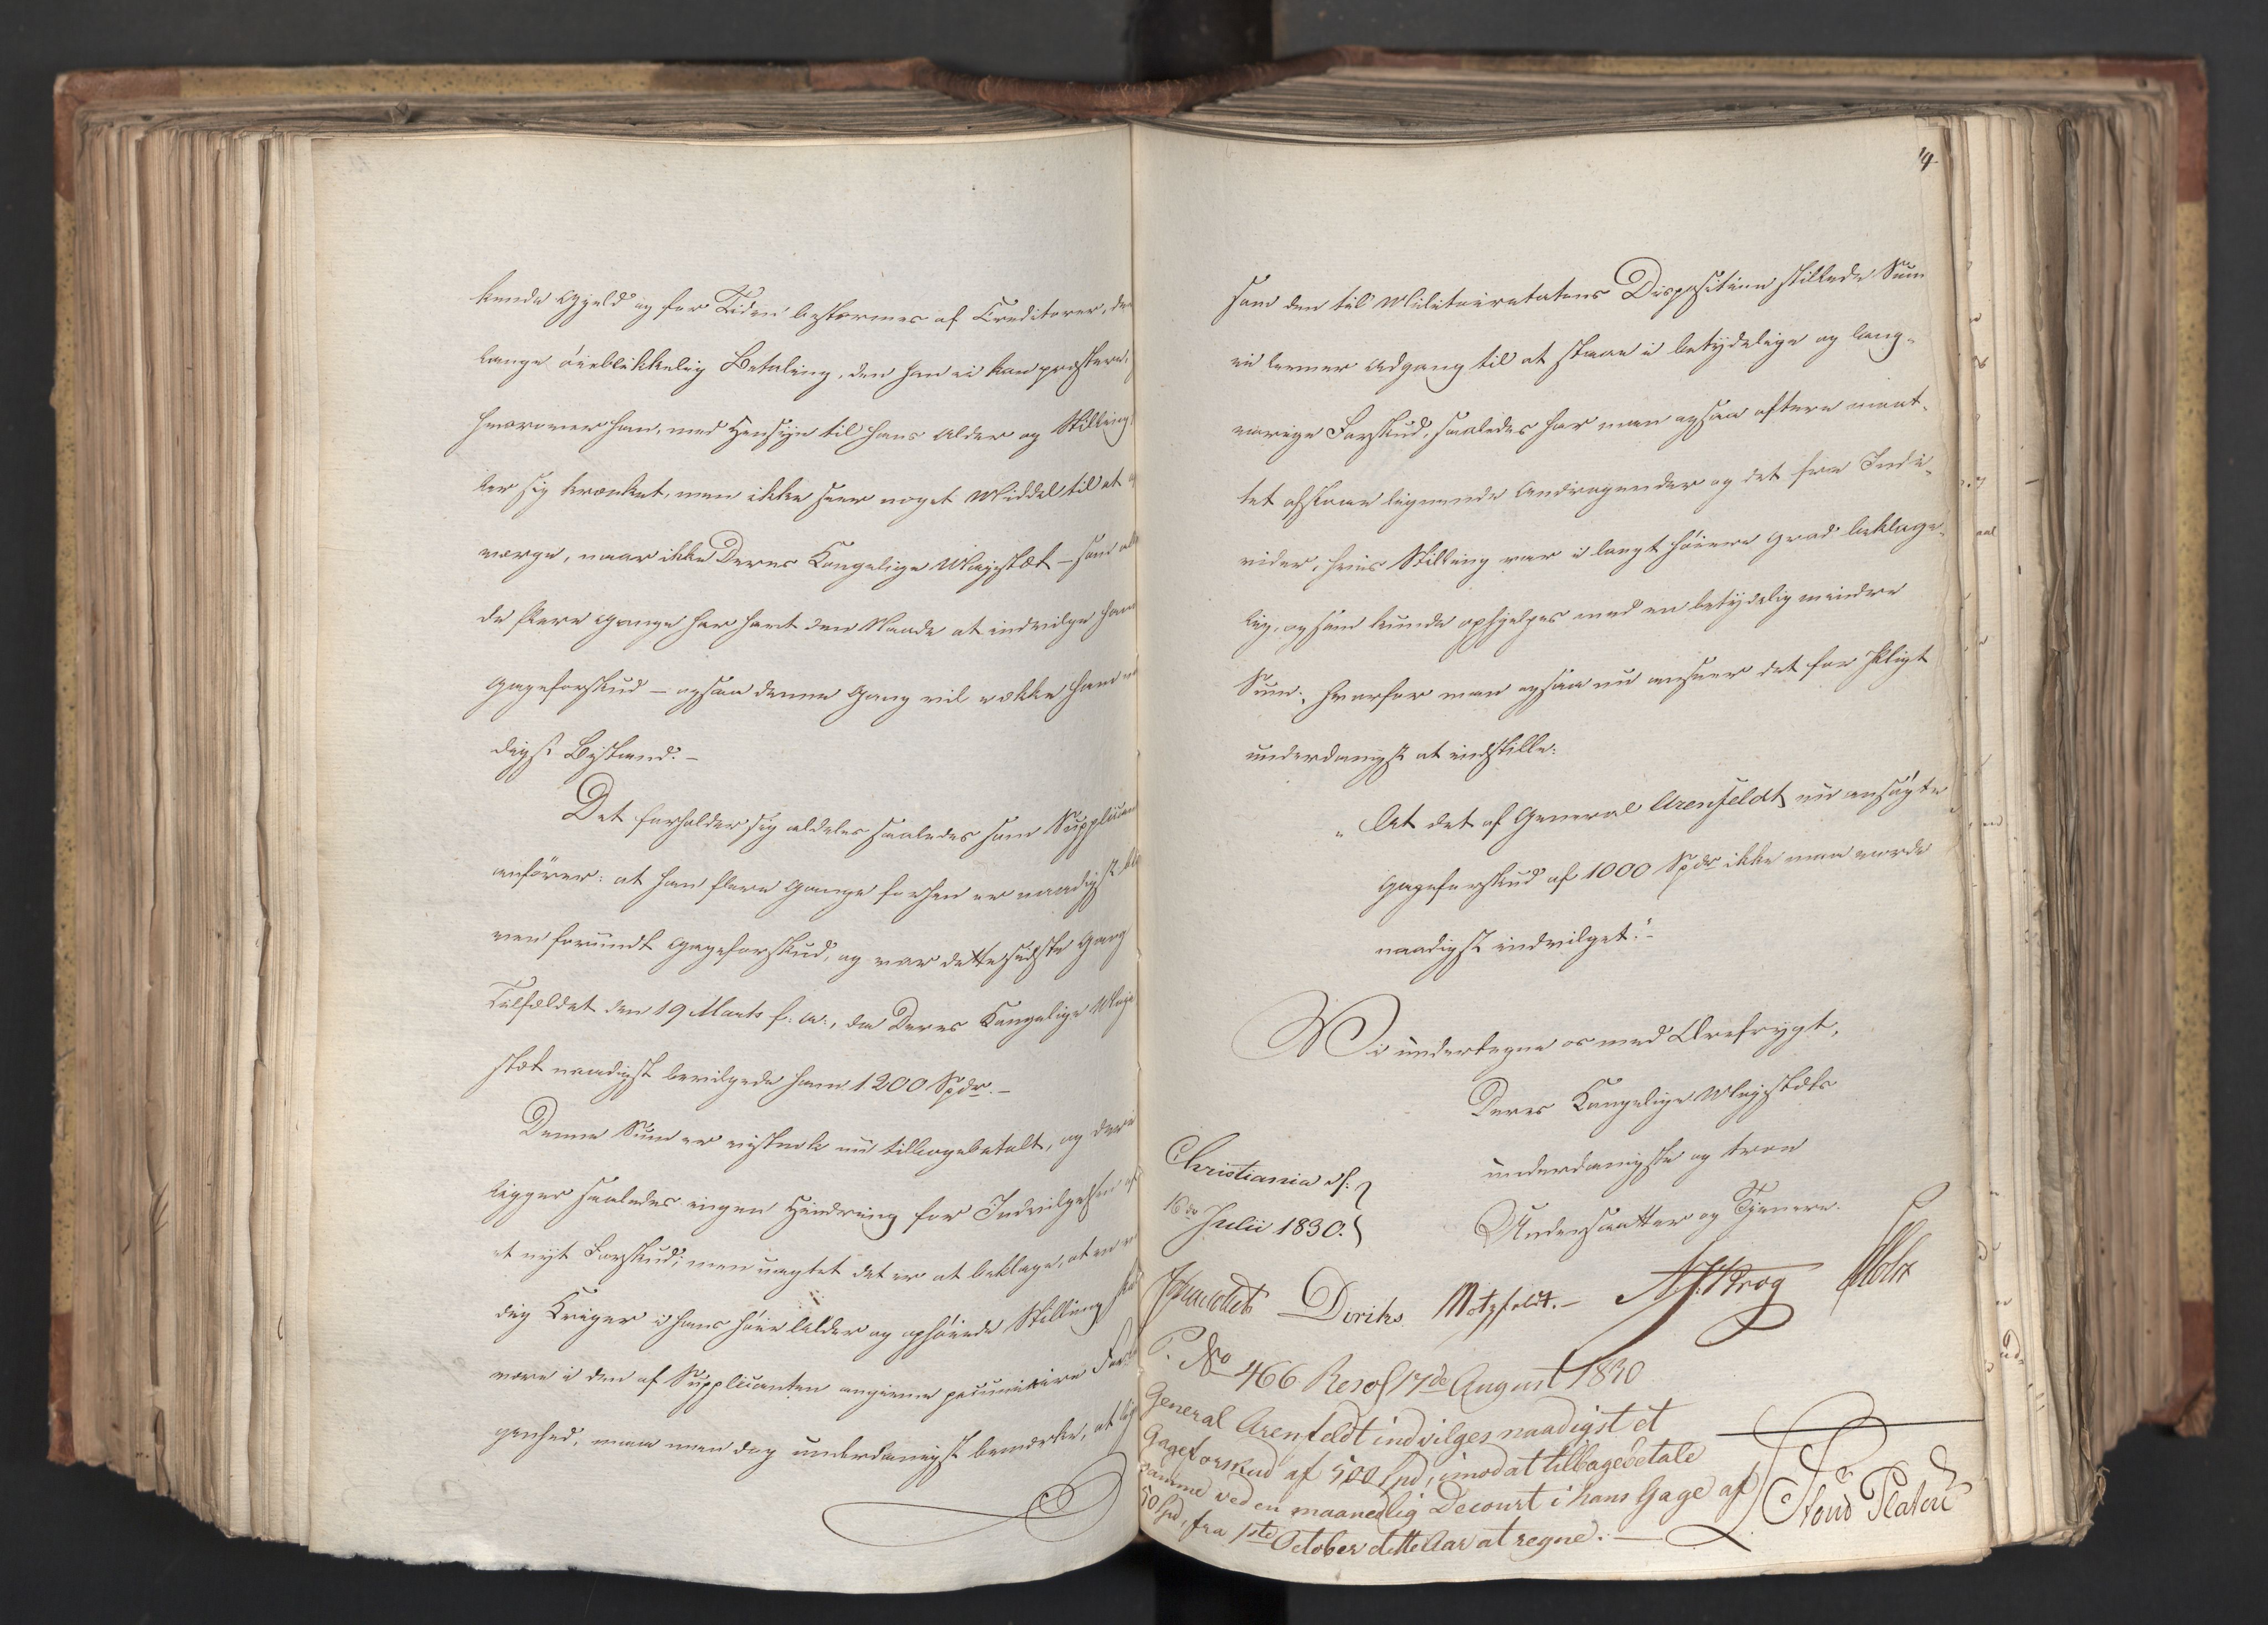 kende Gjæld og for Tiden bestormes af Creditorer, der
lange øieblikkelig Betaling, den han ei kan præstere,
hvorover han, med Hensyn til hans Alder og Stilling
ler sig krænket, men ikke seer noget Middel til at
værge, naar ikke Deres Kongelige Majestæt – som al
de flere Gange har havt den Naade at indvilge ham
Gageforskud – ogsaa denne Gang vil række ham
digst Bistand. –
Det forholder sig aldeles saaledes som Supplican
anförer: at han flere Gange forhen er naadigst ble
ven forundt Gageforskud, og var dette sidste Gang
Tilfældet den 19 Marts f. A., da Deres Kongelige Maje
stæt naadigst bevilgede ham 1200 Spdr. –
Denne Sum er vistnok nu tilbagebetalt, og der
ligger saaledes ingen Hindring for Indvilgelsen af
et nyt Forskud; men uagtet det er at beklage, at en
dig Kriger i hans høie Alder og ophøiede Stilling skal
være i den af Supplicanten angivne pecuniaire For
genhed, maa man dog underdanigst bemærke, at lige
14
som den til Militairetatens Disposition stillede Sum
ei levner Adgang til at staae i betydelige og lang-
varige Forskud, saaledes har man ogsaa oftere maat-
tet afslaae lignende Andragender og det fra Indi-
vider, hvis Stilling var i langt høiere Grad beklage-
lig, og som kunde ophjelpes med en betydelig mindre
Sum; hvorfor man ogsaa nu anseer det for Pligt
underdanigst at indstille:
"At det af General Arenfeldt nu ansögte
Gageforskud af 1000 Spdr ikke maa vorde
naadigst indvilget." –
Vi undertegne os med Ærefrygt,
Deres Kongelige Majestæts
underdanigste og troe
Undersaatter og Tjenere.
Christiania d:
16de Julii 1830.
Diriks Motzfeldt. – Krog Holst
P. No 466 Resol 17de August 1830
General Arenfeldt indvilges naadigst et
Gageforskud af 500 Spd, imod at tilbagebetale
samme ved en maanedlig Decourt i hans Gage af
50 Spd, fra 1ste October dette Aar at regne. –
Platen